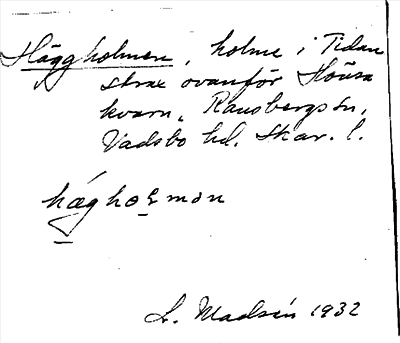 Häggholmen, holme i Tidan
strax ovanför Höüsa
kvarn, Ransbergs sn,
Vadsbo hd. Skar. l.
hæghoʟmən
L. Madsén 1932